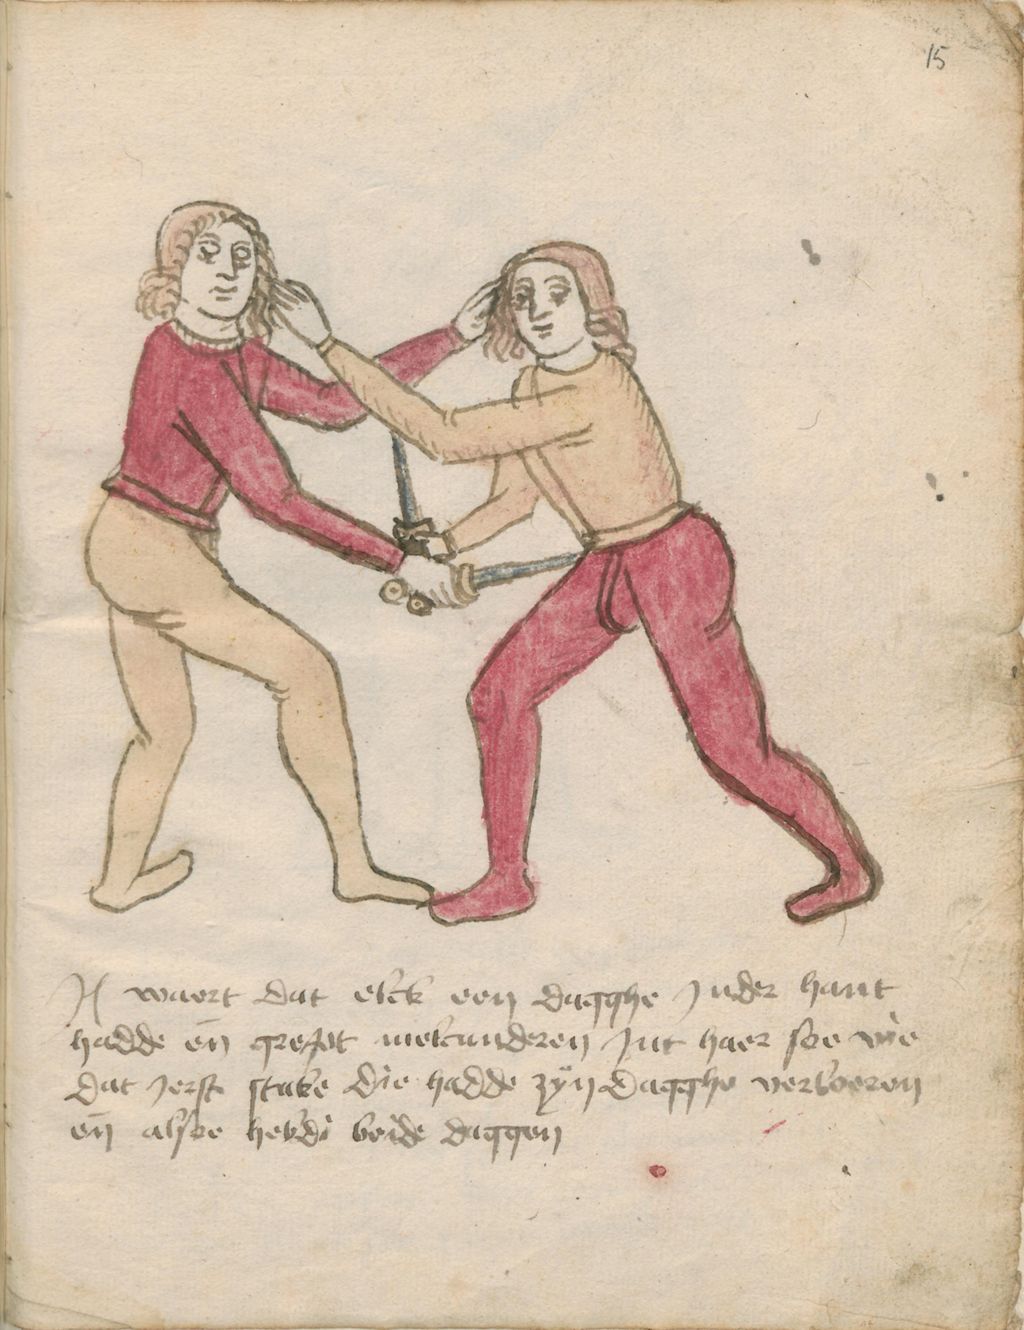 15
It waert dat elck een dagghe Inder hant
hadde en̄ grepet melcanderen Int haer soe wie
dat Ierst stake die hadde zÿn dagghe verloeren
en̄ alsoe hebdi beide daggen